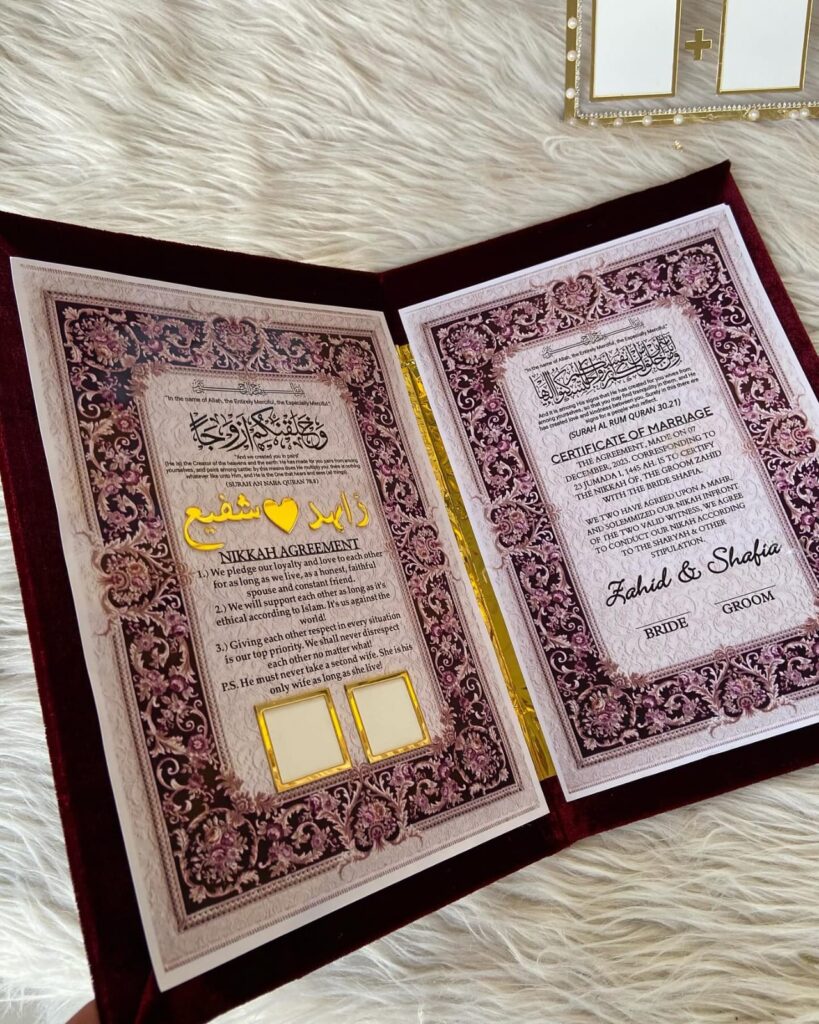 "In the name of Allah, the Entirely Merciful, the Especially Merciful."
وَخَلَقْنَٰكُمْ أَزْوَٰجًا
"And we created you in pairs"
(He is) the Creator of the heavens and the earth: He has made for you pairs from among
yourselves, and pairs among cattle: by this means does He multiply you: there is nothing
whatever like unto Him, and He is the One that hears and sees (all things).
(SURAH AN NABA QURAN 78:8)
زاہد شفیع
NIKKAH AGREEMENT
1.) We pledge our loyalty and love to each other
for as long as we live, as a honest, faithful
spouse and constant friend.
2.) We will support each other as long as it's
ethical according to Islam. It's us against the
world!
3.) Giving each other respect in every situation
is our top priority. We shall never disrespect
each other no matter what!
P.S. He must never take a second wife. She is his
only wife as long as she live!
"In the name of Allah, the Entirely Merciful, the Especially Merciful."
And it is among His signs that He has created for you wives from
among yourselves, so that you may find tranquility in them, and He
has created love and kindness between you. Surely in this there are
signs for a people who reflect.
(SURAH AL RUM QURAN 30:21)
CERTIFICATE OF MARRIAGE
THE AGREEMENT, MADE ON 07
DECEMBER, 2023, CORRESPONDING TO
23 JUMADA 1, 1445 AH. IS TO CERTIFY
THE NIKKAH OF , THE GROOM ZAHID
WITH THE BRIDE SHAFIA
WE TWO HAVE AGREED UPON A MAHR,
AND SOLEMMIZED OUR NIKAH INFRONT
OF THE TWO VALID WITNESS, WE AGREE
TO CONDUCT OUR NIKAH ACCORDING
TO THE SHARYAH & OTHER
STIPULATION.
Zahid & Shafia
BRIDE GROOM